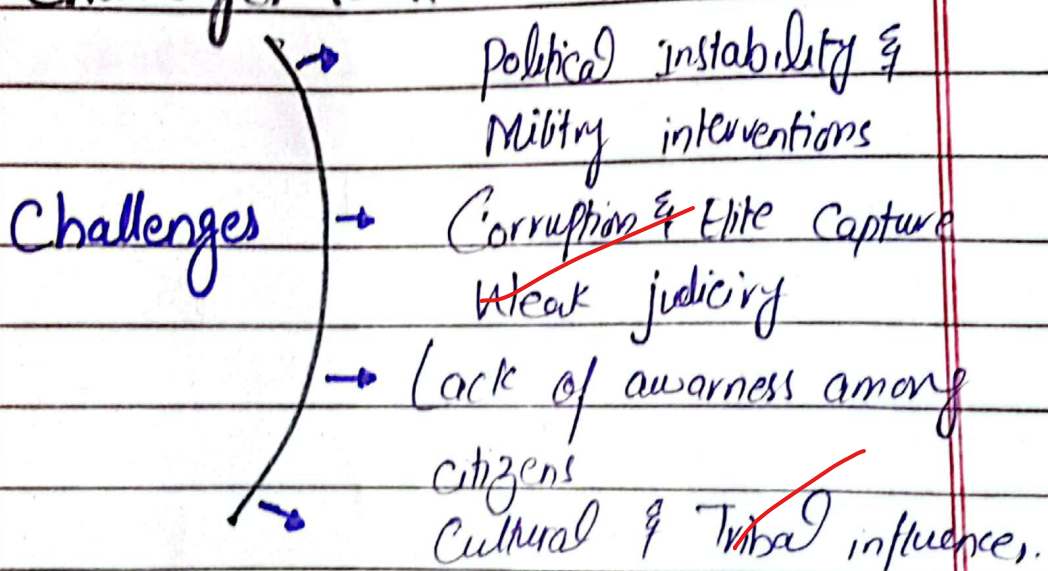 Political instability &
Militry interventions
Challenges → Corruption & Elite Capture
Weak judiciry
Lack of awarness among
citizens
Cultural & Tribal influences.